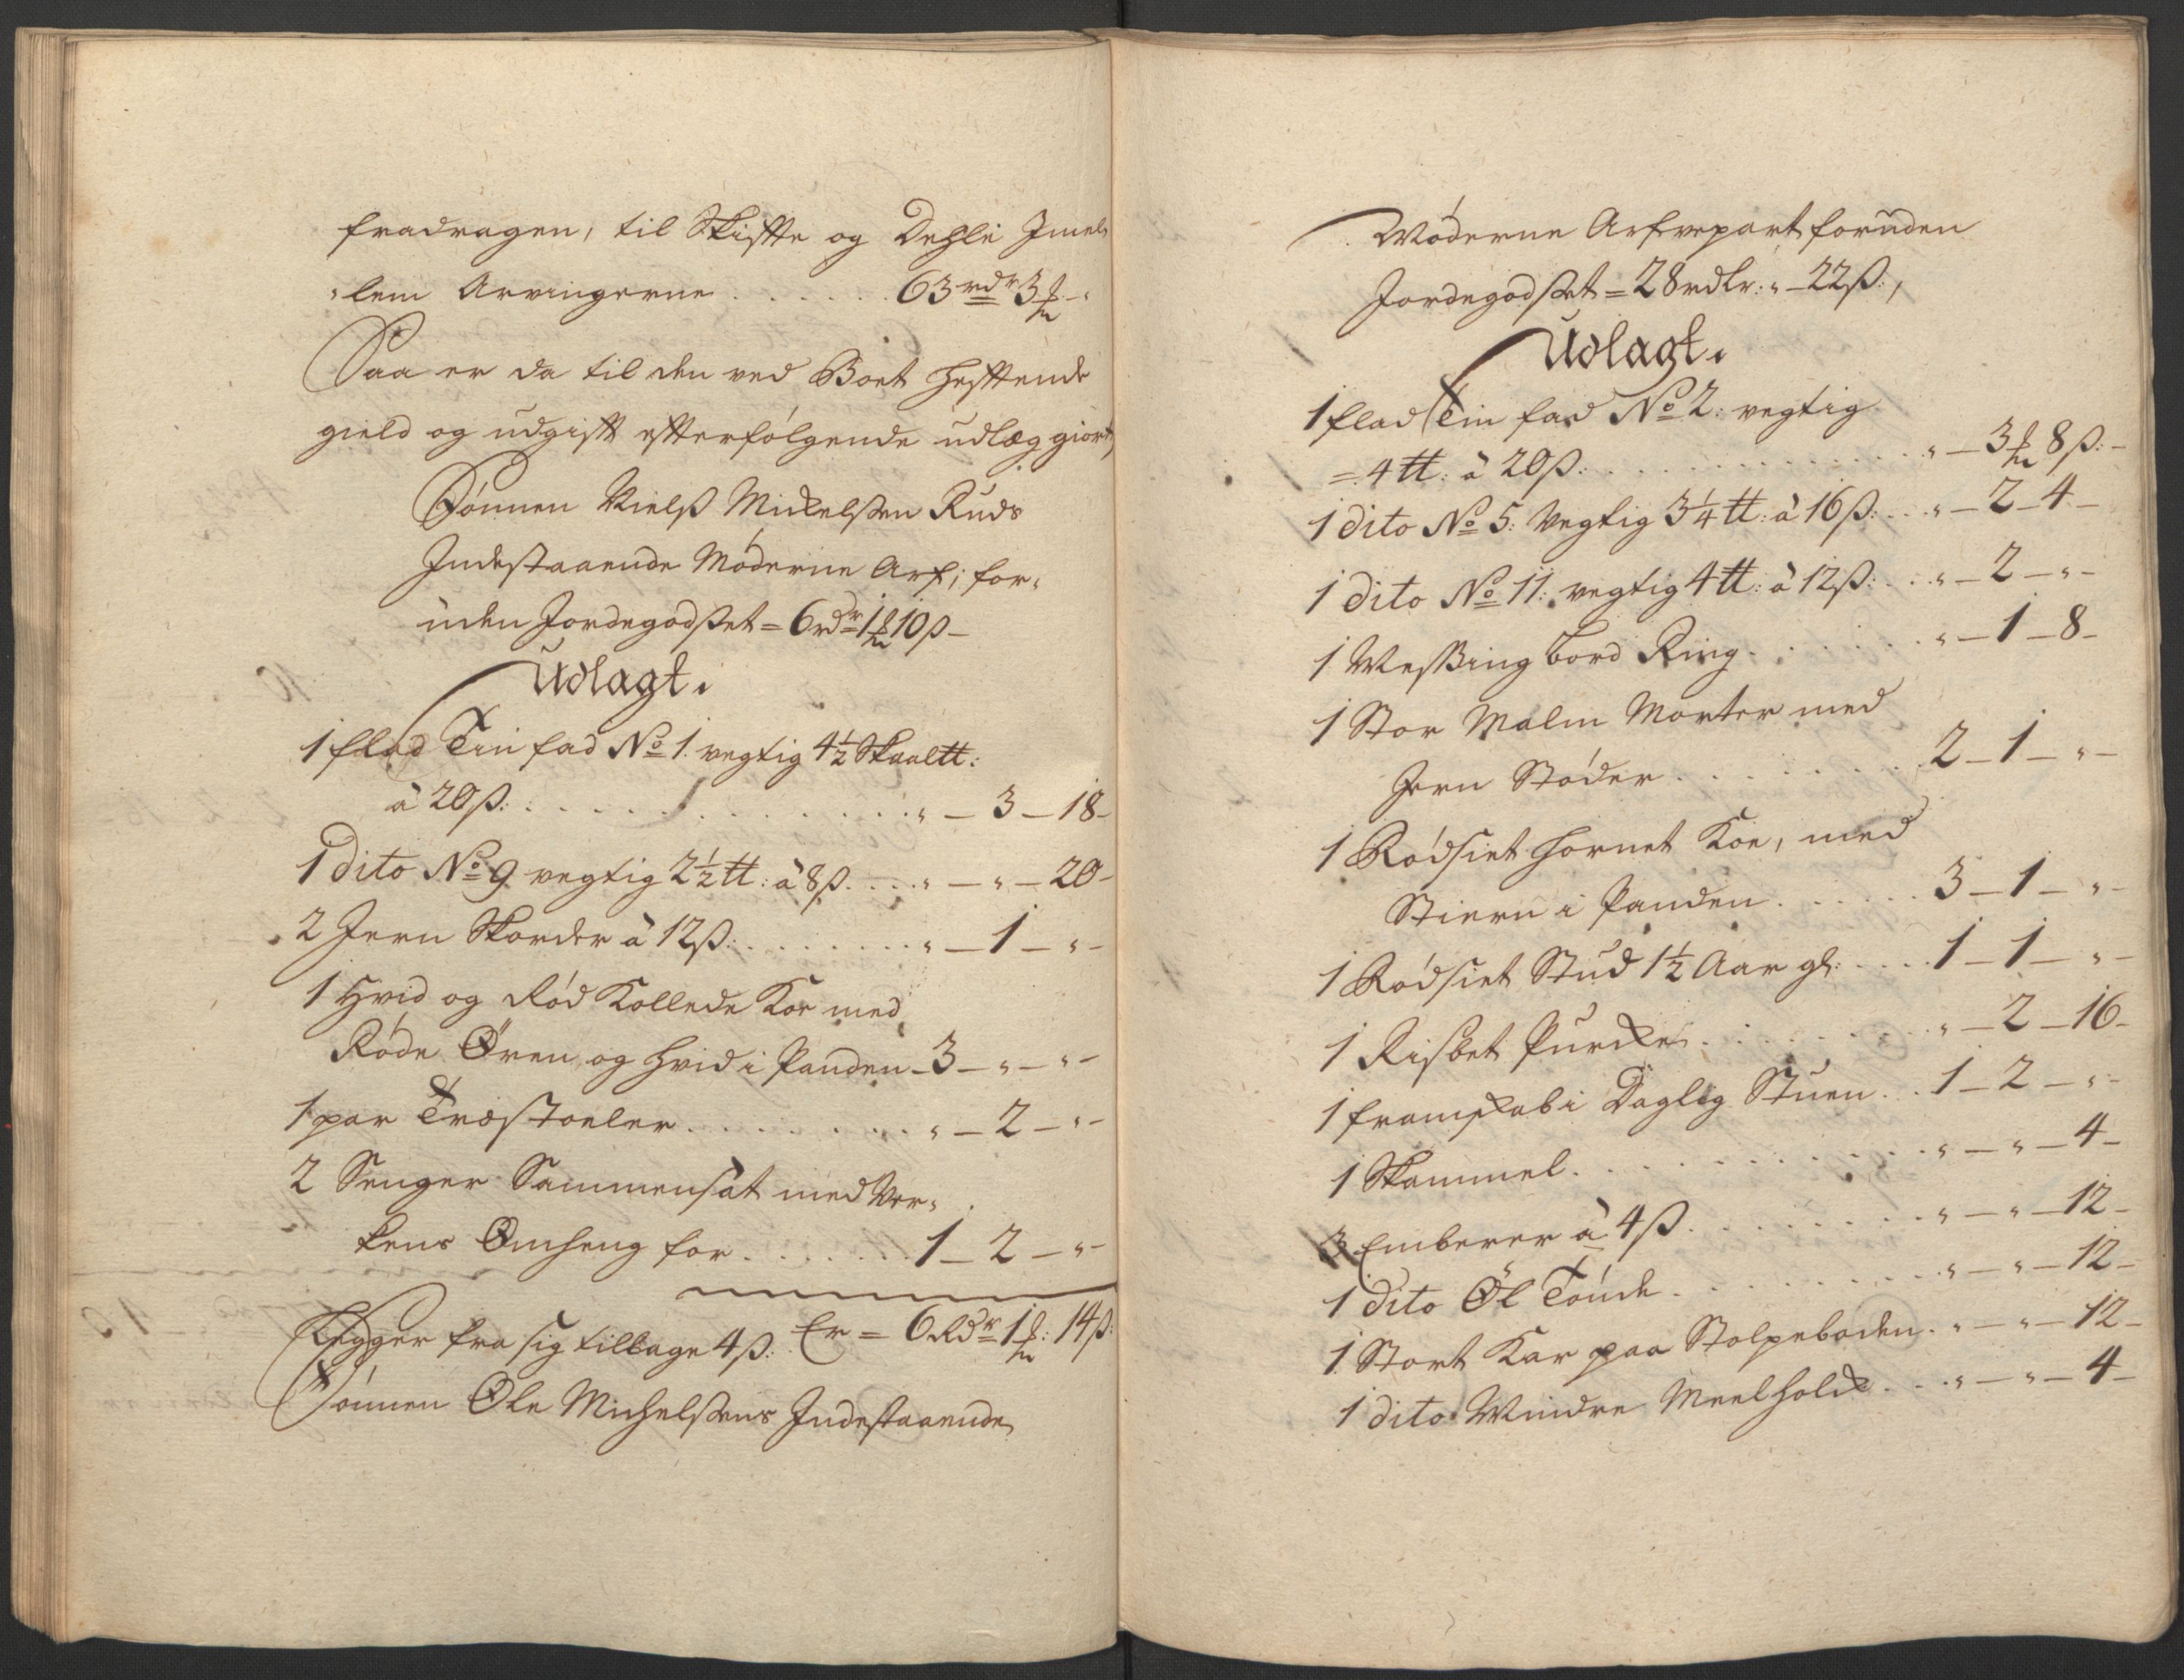 fradragen, til Skiffte og Dehle Imel-
lem Arvingerne . . . . . . 63rdr 3 ₰ -"
Saa er da til den ved Boet Hefftende
gield og udgifft efterfølgende udlæg giort,
Sønnen Nielß Mickelßen Ruds
Indestaaende Møderne Arf; for-
uden Jordegodset = 6rdr 1 ₰ 10 ß -
Udlagt.
1 flad Tin fad No 1. vegtig 4½ Skaal ℔:
à 20 ß: . . . . . . " - 3 - 18 -
1 dito No 9 vegtig 2½ ℔: à 8 ß. . . . " - " - 20 -
2 Jern Skorder à 12 ß: . . . . . . " - 1 - " -
1 Hvid og Rød Kollede Koe med
Røde Øren, og hvid i Panden - 3 - " - " -
1 par Træstoeler . . . . . . " - 2 - " -
2 Senger Sammensat med Ver-
kens Omheng for . . . . . 1 - 2 - " -
Legger fra sig tilbage 4 ß: Er = 6 Rdr 1 ₰: 14 ß:
Sønnen Ole Michelßens Indestaaende
Møderne Arfvepart foruden
Jordegodset = 28 rdlr: " - 22 ß:,
Udlagt.
1 flad Tin fad No 2: vegtig
= 4 ℔: à 20 ß: . . . . . . " - 3 ₰ 8 ß: -
1 dito No 5: Vegtig 3¼ ℔: à 16 ß: . . " - 2 - 4 -
1 dito No 11: vegtig 4 ℔: à 12 ß: . . " - 2 - " -
1 Messing bord Ring . . . . . . " - 1 - 8 -
1 Stor Malm Morter med
Jern Støder . . . . . . 2 - 1 - " -
1 Rødsiet hornet Koe, med
Stiern i Panden . . . . . 3 - 1 - " -
1 Rødsiet Stud 1½ Aar gl: . . . 1 - 1 - " -
1 Risbet Purcke . . . . . . " - 2 - 16 -
1 framskab i Daglig Stuen . . 1 - 2 - " -
1 Skammel . . . . . . " - " - 4 -
3 Emberer à 4 ß . . . . . . " - " - 12 -
1 dito Øl Tønde . . . . . . " - " - 12 -
1 Stort Kar paa Stolpeboden . . " - " - 12 -
1 dito Mindre Meelholck . . . " - " - 4 -